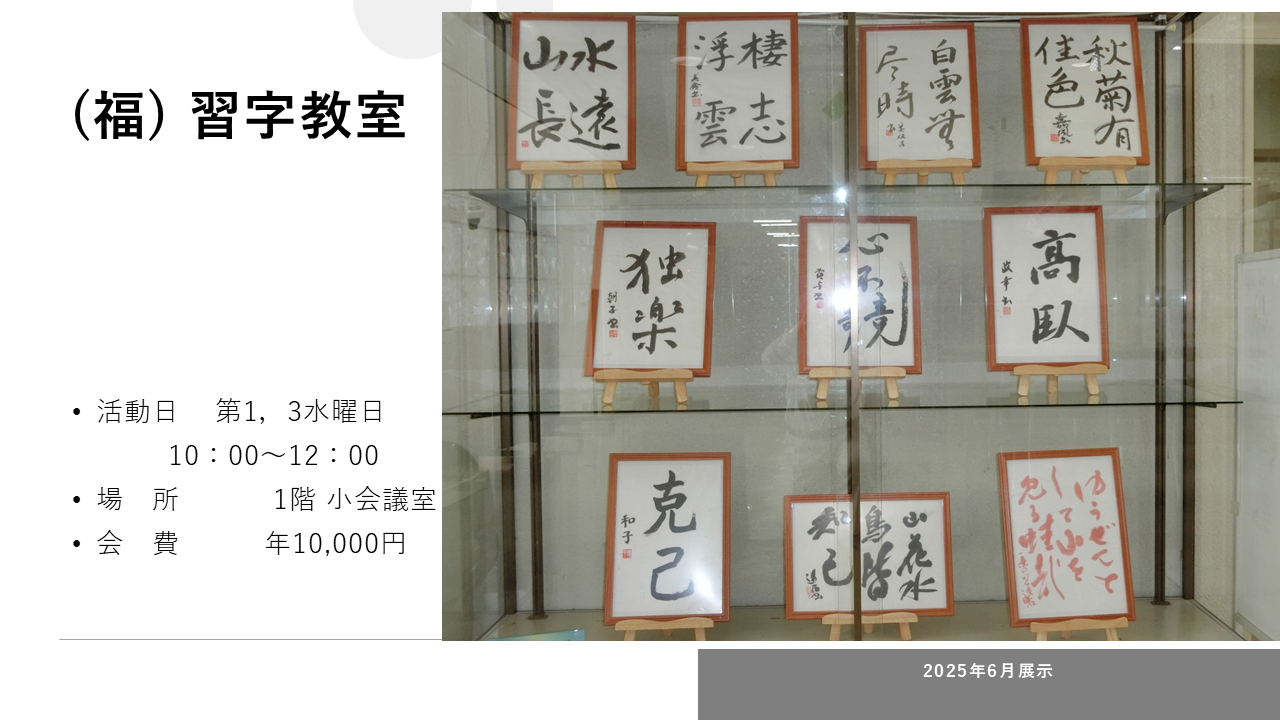 (福) 習字教室
• 活動日　第1，3水曜日
10：00～12：00
• 場　所　1階 小会議室
• 会　費　年10,000円
山水
長遠
棲志
浮雲
白雲無
尽時
秋菊有
佳色
独
楽
朝子書
心
不
競
高
臥
克
己
和子
山花水
鳥皆
知己
ゆうぜんと
して山を
見る蛙哉
2025年6月展示